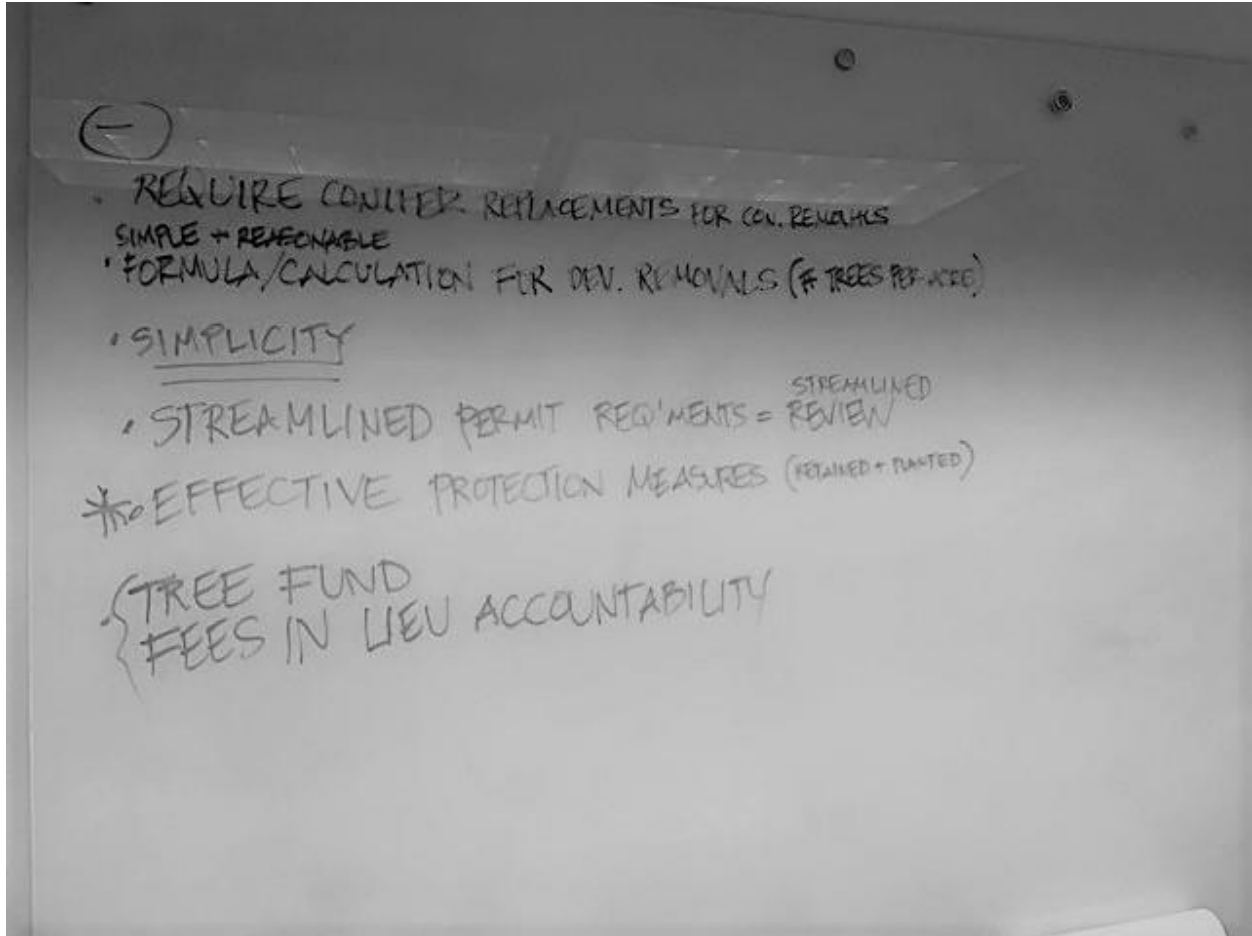 (-)
• REQUIRE CONIFER REPLACEMENTS FOR CON. REMOVALS
SIMPLE + REASONABLE
• FORMULA/CALCULATION FOR DEV. REMOVALS (# TREES PER ACRE)
• SIMPLICITY
• STREAMLINED PERMIT REQ'MENTS = STREAMLINED REVIEW
* • EFFECTIVE PROTECTION MEASURES (RETAINED + PLANTED)
• { TREE FUND
FEES IN LIEU ACCOUNTABILITY